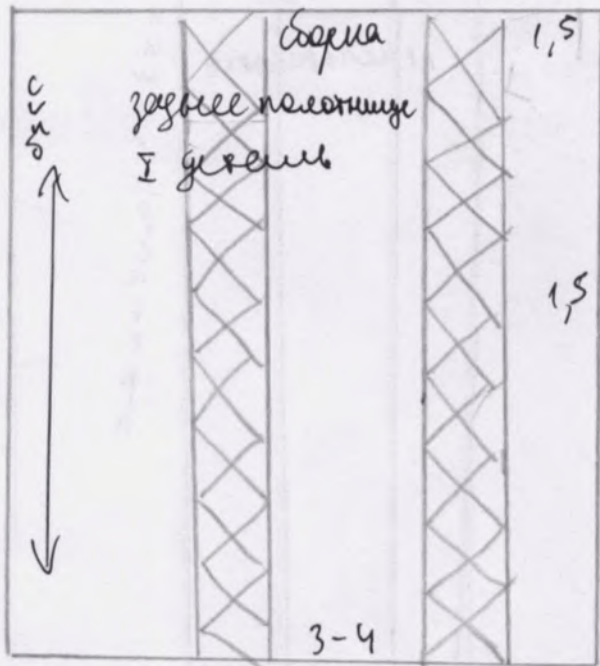 сборка
1,5
сгиб
заднее полотнище
I деталь
1,5
3-4